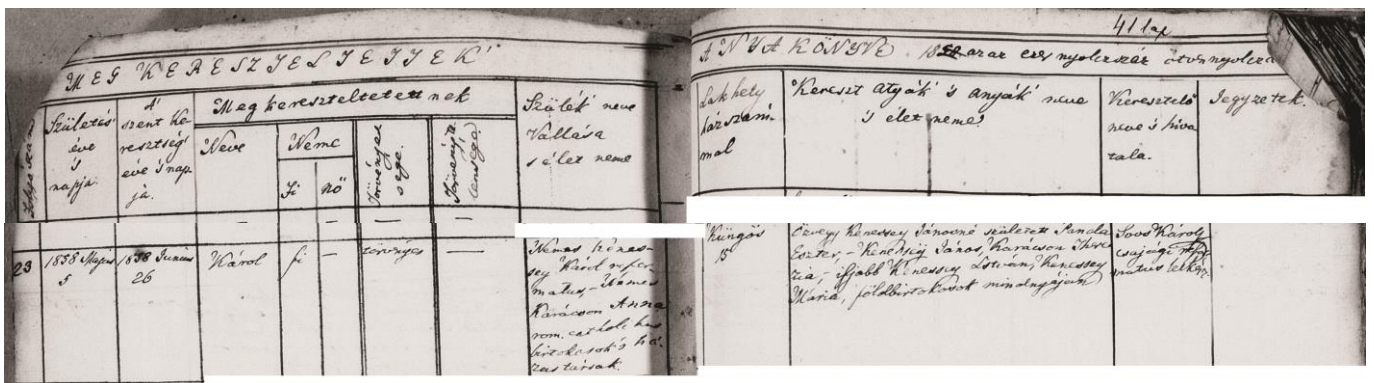 41 lap
MEG KERESZTELTETTEK'
ANYAKÖNYVE. 1858azar ezer nyolczszáz ötven nyolcza
Születés'
éve
's
napja.
A'
szent ke-
resztség'
éve 's nap-
ja.
Meg kereszteltetettnek
Neve
Neme
fi
nő
Törvényes
sége.
Törvényte
lensége.
Szülék' neve
Vallása
s élet neme
Lak hely
házszám-
mal
Kereszt atyák' 's anyák' neve
's élet neme.
Keresztelő
neve 's hiva
tala.
Jegyzetek.
23
1858 Május
5
1858 Junius
26
Károl
fi
—
törvényes
—
Nemes Kenes-
sey Károl refor-
matus, – Nemes
Karácson Anna
rom. catholi kus
birtokosok 's há-
zastársak.
Küngös
13
Özvegy Kenessey Jánosné született Sandor
Eszter, – Kenessey János, Karácson There
zia, – ifjabb Kenessey István, Kenessey
Mária, földbirtokosok mindnyájan
Soós Károly
csajági refor
matus lelkész